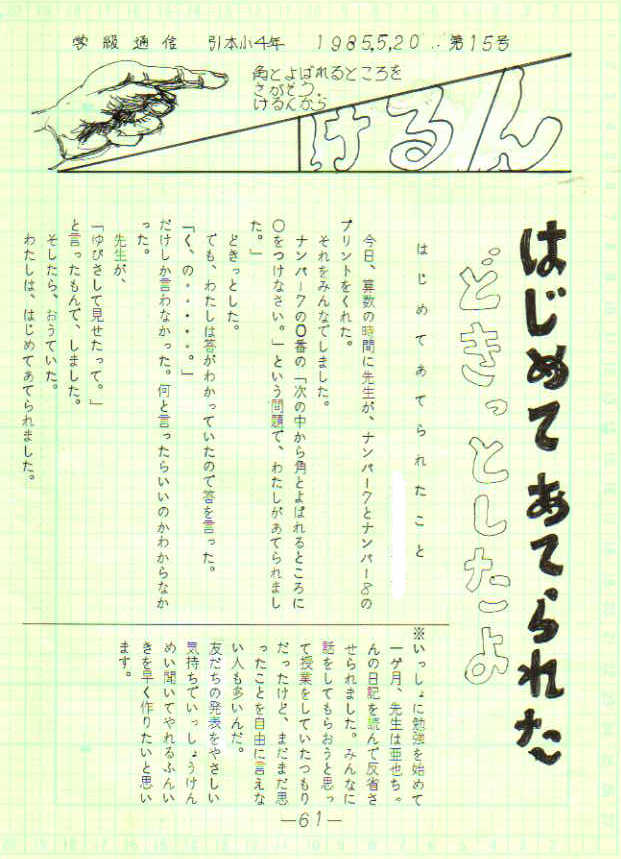 学級通信　引本小4年　1985,5,20　‥第15号
角とよばれるところを
さがそう。
けるんから
けるん
はじめて あてられた
どきっとしたよ
はじめてあてられたこと
今日、算数の時間に先生が、ナンバー7とナンバー8の
プリントをくれた。
それをみんなでしました。
ナンバー7の〇番の「次の中から角とよばれるところに
〇をつけなさい。」という問題で、わたしがあてられまし
た。」
どきっとした。
でも、わたしは答がわかっていたので答を言った。
「く、の・・・・・。」
だけしか言わなかった。何と言ったらいいのかわからなか
った。
先生が、
「ゆびさして見せたって。」
と言ったもんで、しました。
そしたら、おうていた。
わたしは、はじめてあてられました。
※いっしょに勉強を始めて
一ヶ月、先生は亜也ち。
んの日記を読んで反省さ
せられました。みんなに
話をしてもらおうと思っ
て授業をしていたつもり
だったけど、まだまだ思
ったことを自由に言えな
い人も多いんだ。
友だちの発表をやさしい
気持ちでいっしょうけん
めい聞いてやれるふんい
きを早く作りたいと思い
ます。
—61—